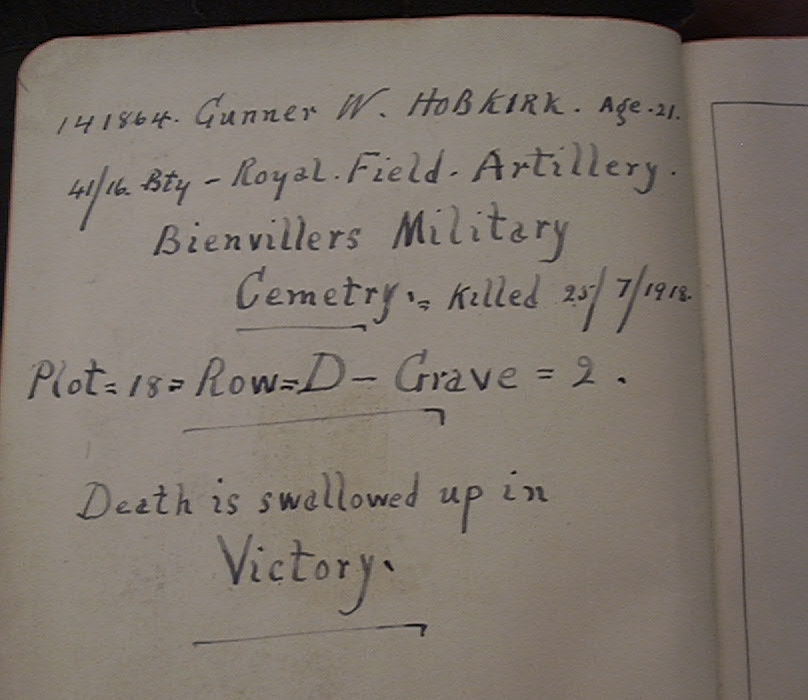 141864. Gunner W. HOBKIRK. Age.21.
41/16. Bty - Royal. Field. Artillery.
Bienvillers Military
Cemetry.= Killed 25/7/1918.
Plot= 18= Row=D- Grave = 2.
Death is swallowed up in
Victory.